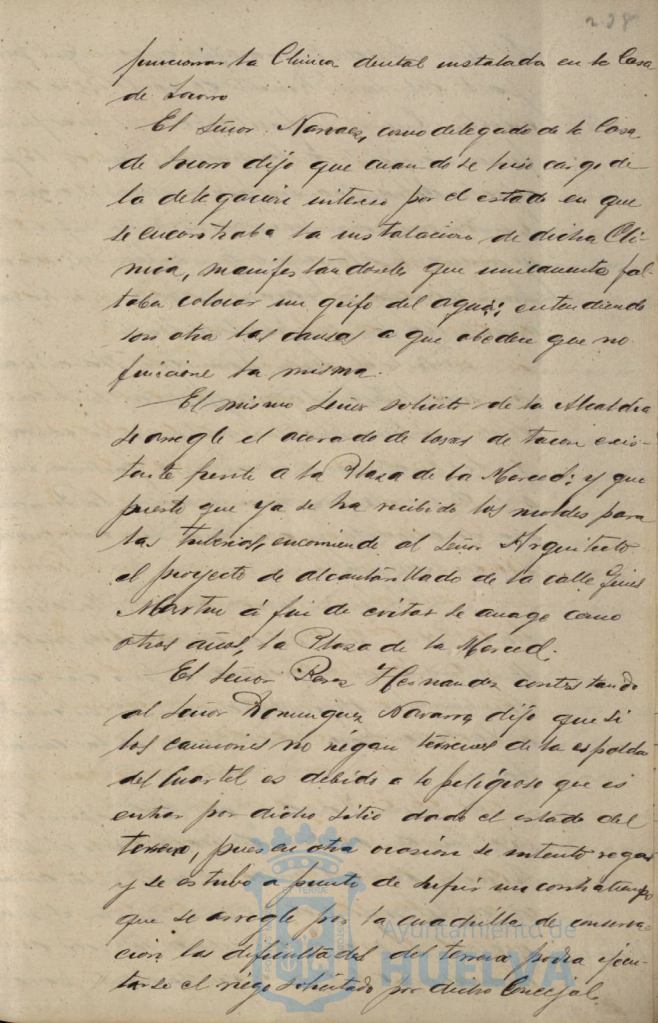 228
funcionar la Clinica dental instalada en la Casa
de Socorro
El Señor Narvaez, como delegado de la Casa
de Socorro dijo que cuando se hiso cargo de
la delegacion intereso por el estado en que
se encontraba la instalacion de dicha Cli-
nica, manifestandosele que unicamente fal-
taba colocar un grifo del agua; entendiendo
son otra las causas a que obedece que no
funcione la misma.
El mismo Señor solicito de la Alcaldia
se arregle el acerado de losas de tacon exis-
tente frente a la Plaza de la Merced; y que
puesto que ya se ha recibido los moldes para
las tuberias, encomiende al Señor Arquitecto
el proyecto de alcantarillado de la calle Gines
Martin á fin de evitar se anage como
otros años, la Plaza de la Merced.
El Señor Perez Hernandez contestando
al Señor Dominguez Navarro, dijo que si
los camiones no riegan terrenos de la espalda
del Cuartel es debido a lo peligroso que es
entrar por dicho sitio dado el estado del
terreno, pues en otra ocasion se intento regar
y se estubo a punto de sufrir un contratiempo
que se arregle por la cuadrilla de conserva-
cion las dificultades del terreno podra ejecu-
tarse el riego solicitado por dicho Concejal.
Ayuntamiento de
HUELVA